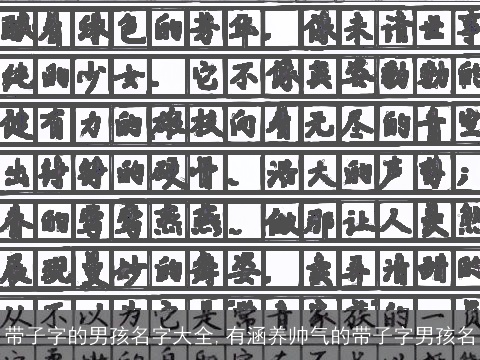 酿着绿色的芬华，像未谙世事
纯的少女。它不像真姿勃勃的
健有力的雄枝向着无尽的青空
出铮铮的硬骨、浩大的声势；
春的莺莺燕燕、做那让人灵然
展现曼妙的舞姿，卖弄清甜的
从不以为它是常青家族的一员
带子字的男孩名字大全,有涵养帅气的带子字男孩名